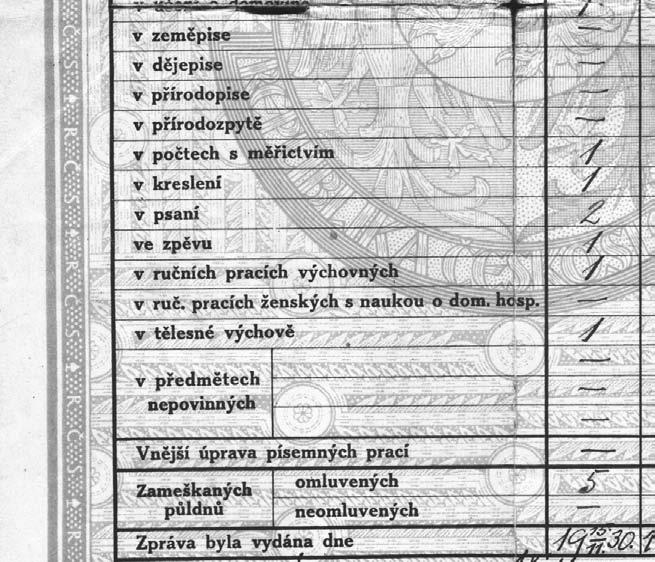 v zeměpise —
v dějepise —
v přírodopise —
v přírodozpytě —
v počtech s měřictvím 1
v kreslení 1
v psaní 2
ve zpěvu 1
v ručních pracích výchovných 1
v ruč. pracích ženských s naukou o dom. hosp. —
v tělesné výchově 1
—
v předmětech —
nepovinných —
Vnější úprava písemných prací —
Zameškaných omluvených 5
půldnů neomluvených —
Zpráva byla vydána dne 19 15/11 30.